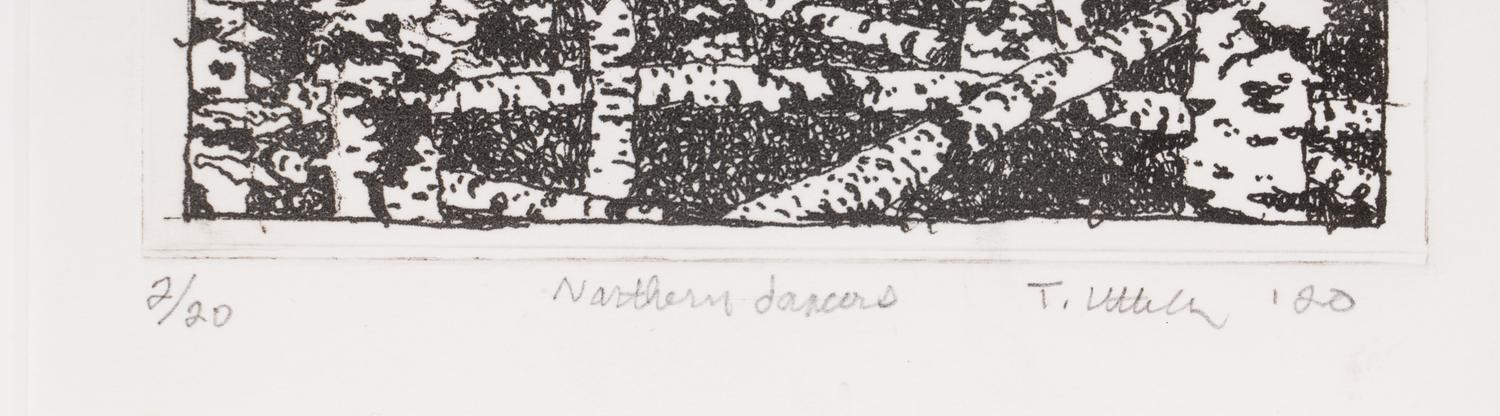 2/20 Northern dancers T. Uttech '20